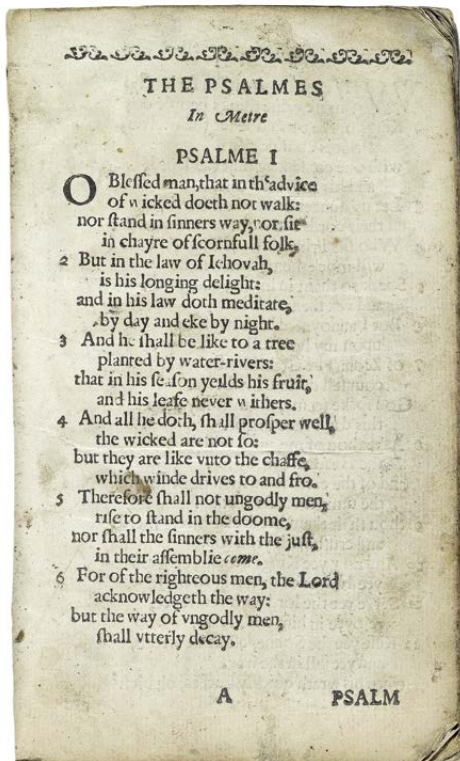 THE PSALMES
In Metre
PSALME I
O Blessed man, that in th'advice
of wicked doeth not walk:
nor stand in sinners way, nor sit
in chayre of scornfull folk,
2 But in the law of Iehovah,
is his longing delight:
and in his law doth meditate,
by day and eke by night.
3 And he shall be like to a tree
planted by water-rivers:
that in his season yeilds his fruit,
and his leafe never withers.
4 And all he doth, shall prosper well,
the wicked are not so:
but they are like vnto the chaffe,
which winde drives to and fro.
5 Therefore shall not ungodly men,
rise to stand in the doome,
nor shall the sinners with the just,
in their assemblie come.
6 For of the righteous men, the Lord
acknowledgeth the way:
but the way of vngodly men,
shall vtterly decay.
A PSALM